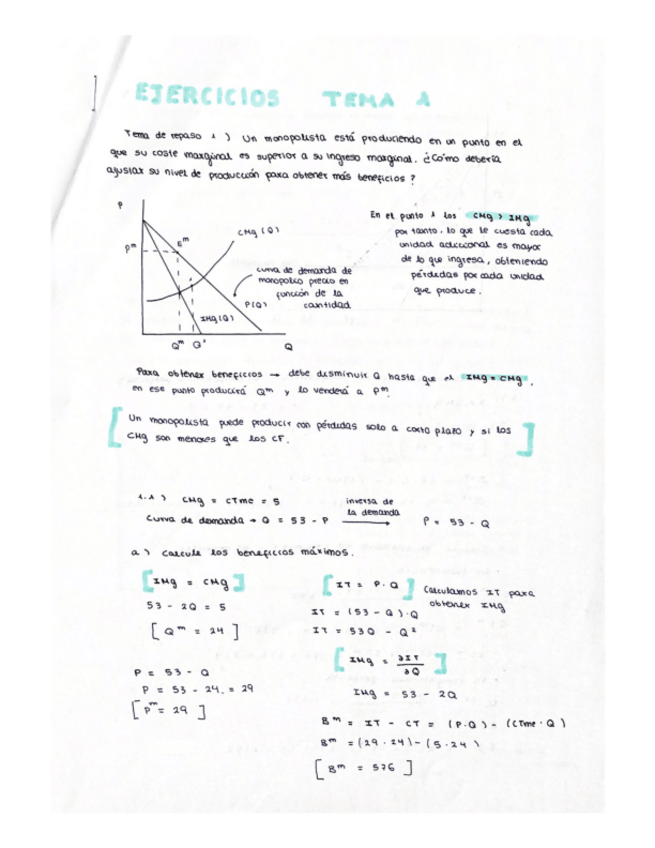 EJERCICIOS TEMA 1
Tema de repaso 1) Un monopolista está produciendo en un punto en el
que su coste marginal es superior a su ingreso marginal. ¿Cómo debería
ajustar su nivel de producción para obtener más beneficios?
P
Pm
Em
CMg(Q)
curva de demanda de
monopolio precio en
función de la
cantidad
P(Q)
IMg(Q)
Qm Q' Q
En el punto 1 los CMg > IMg
por tanto, lo que le cuesta cada
unidad adicional es mayor
de lo que ingresa, obteniendo
pérdidas por cada unidad
que produce.
Para obtener beneficios → debe disminuir Q hasta que el IMg = CMg,
en ese punto producirá Qm y lo venderá a Pm.
[Un monopolista puede producir con pérdidas solo a corto plazo y si los
CMg son menores que los CF.]
1.1) CMg = CTme = 5
Curva de demanda → Q = 53 - P
inversa de
la demanda
→ P = 53 - Q
a) Calcule los beneficios máximos.
[IMg = CMg]
53 - 2Q = 5
[Qm = 24]
P = 53 - Q
P = 53 - 24. = 29
[Pm = 29]
[IT = P·Q] Calculamos IT para
obtener IMg
IT = (53 - Q)·Q
IT = 53Q - Q²
[IMg = ∂IT/∂Q]
IMg = 53 - 2Q
Bm = IT - CT = (P·Q) - (CTme·Q)
Bm = (29·24) - (5·24)
[Bm = 576]